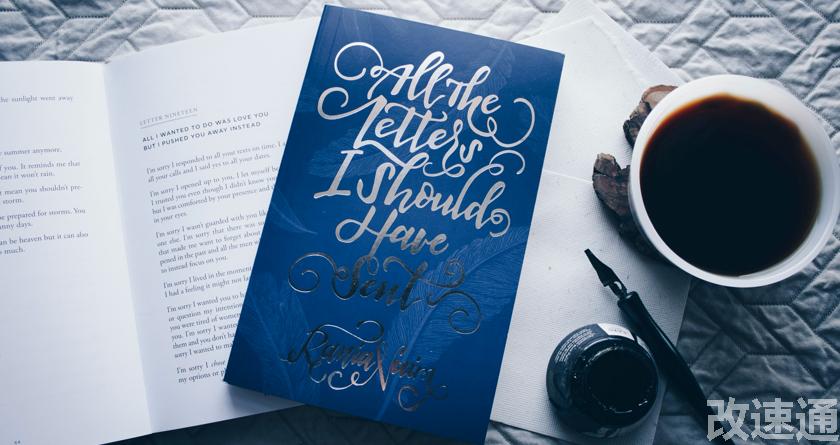 he sunlight went away
summer anymore.
f you. It reminds me that
ean it won't rain.
t mean you shouldn't pre-
storm.
e prepared for storms. You
nny days.
an be heaven but it can also
s much.
64
LETTER NINETEEN
ALL I WANTED TO DO WAS LOVE YOU
BUT I PUSHED YOU AWAY INSTEAD
I'm sorry I responded to all your texts on time. I a
all your calls and I said yes to all your dates.
I'm sorry I opened up to you, I let myself be
I trusted you even though I didn't know you
but I was comforted by your presence and th
in your eyes.
I'm sorry I wasn't guarded with you lik
one else. I'm sorry that there was so
that made me want to forget about
pened in the past and all the men w
to instead focus on you.
I'm sorry I lived in the momen
I had a feeling it might not las
I'm sorry I wanted you to h
or question my intention
you were tired of women
them and you don't ha
sorry I wanted to ma
I'm sorry I
my options or p
All The
Letters
I Should
Have
Sent
Rania Naim
改速通